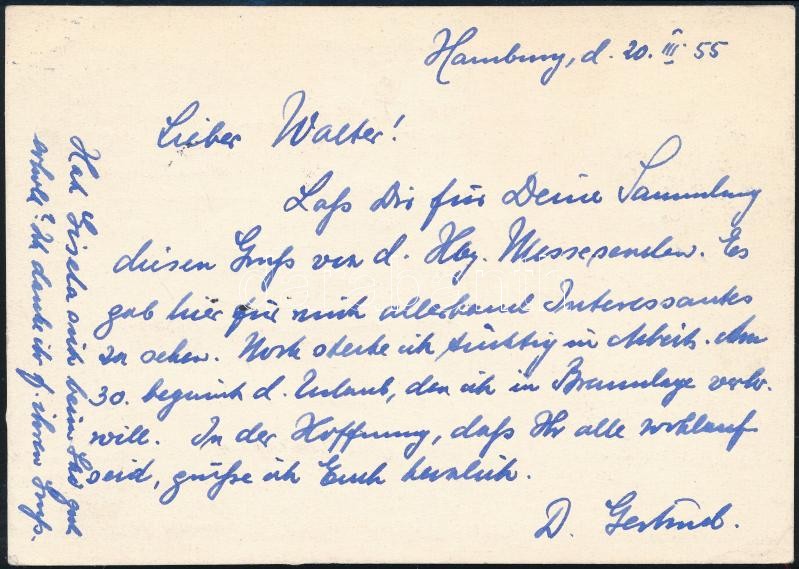 Hamburg, d. 20. III. 55
Lieber Walter!
Laß Dir für Deine Sammlung
diesen Gruß von d. Hbg. senden. Es
gab hier für mich allerhand Interessantes
zu sehen. Noch stecke ich tüchtig in Arbeit. Am
30. beginnt d. Urlaub, den ich in Braunlage verbr.
will. In der Hoffnung, daß Ihr alle wohlauf
seid, grüße ich Euch herzlich.
D. Gertrud.
Hat Gisela sich beim Ski gut
erholt? Ich danke ihr f. ihren Gruß.